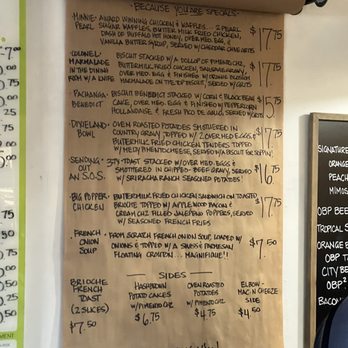 BECAUSE YOU ARE SPECIALS
MINNIE PEARL - AWARD WINNING CHICKEN & WAFFLES... 2 PEARL SUGAR WAFFLES, BUTTER MILK FRIED CHICKEN, $17.75
DASH OF BUFFALO HOT HONEY, OVER MED. EGG &
VANILLA BUTTER SYRUP, SERVED W/CHEDDAR GRITS
COLONEL MARMALADE IN THE DINING ROOM W/A
BISCUIT STACKED W/A DOLLOP OF PIMENTO CHZ,
BUTTERMILK FRIED CHICKEN, SAUSAGE GRAVY, $17.75
OVER MED. EGG & FINISHED W/ORANGE
MARMALADE ON THE TOP BISCUIT, SERVED W/GRITS
PACHANGA BENEDICT - BISCUIT BENEDICT STACKED W/CORN & BLACK BEAN
CAKE, OVER MED. EGG & FINISHED W/PEPPERCORN $15.75
HOLLANDAISE & FRESH PICO DE GALLO, SERVED W/GRITS
DIXIELAND BOWL - OVEN ROASTED POTATOES SMOTHERED IN
COUNTRY GRAVY, TOPPED W/2 OVER MED EGGS & $17.75
BUTTERMILK FRIED CHICKEN TENDERS, TOPPED
W/MELTY PIMENTO CHEESE, SERVED W/A BISCUIT FOR SOPPIN'
SENDING OUT AN S.O.S. - TOAST STACKED W/OVER MED. EGGS &
SMOTHERED IN CHIPPED-BEEF GRAVY, SERVED $16.75
W/SRIRACHA RANCH SEASONED POTATOES
BIG POPPER CHICKEN - BUTTERMILK FRIED CHICKEN SANDWICH ON TOASTED
BRIOCHE TOPPED W/APPLEWOOD BACON & $17.75
CREAM CHZ FILLED JALAPEÑO POPPERS, SERVED
W/SEASONED FRENCH FRIES
FRENCH ONION SOUP - FROM SCRATCH FRENCH ONION SOUP, LOADED W/
ONIONS & TOPPED W/A SWISS & PARMESAN $7.50
FLOATING CROUTON... MAGNIFIQUE!!
SIDES
BRIOCHE FRENCH TOAST (2 SLICES) $7.50
HASHBROWN POTATO CAKES W/PIMENTO CHZ $6.75
OVEN ROASTED POTATOES W/PIMENTO CHZ $4.75
ELBOW MAC N CHEEZE SIDE $4.50
SIGNATURE
ORANGE
PEACH
MIMOS
OBP BEER
TROPICAL S
ORANGE B
OBP TA
CITY BE
OBP²
BACON